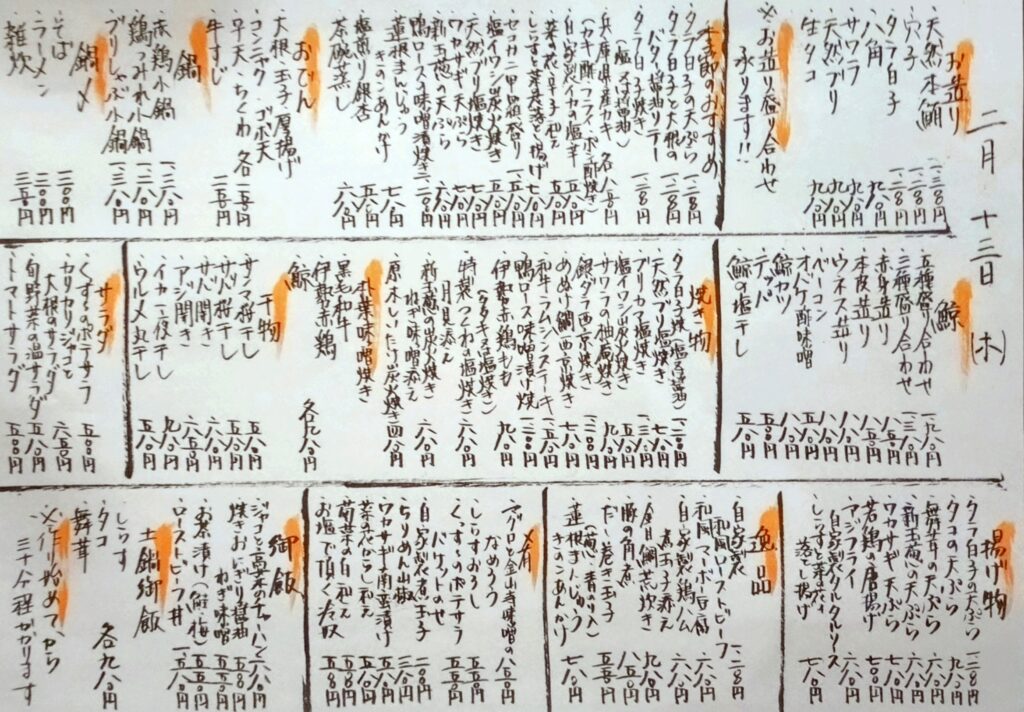 二月十三日(木)
お造り
天然本鮪 一、二八〇円
穴子 一、二八〇円
タラ白子 一、二八〇円
八角 九八〇円
サワラ 九八〇円
天然ブリ 九八〇円
生タコ 九八〇円
※お造り盛り合わせ
承ります!!
季節のおすすめ
タラ白子の天ぷら 一、二八〇円
タラ白子と大根の
バタ醤油ソテー 一、二八〇円
タラ白子焼き
(塩又は醤油) 一、二八〇円
兵庫県産カキ 各八八〇円
(カキ酢・フライ・ポン酢焼き)
自家製イカの塩辛 五八〇円
菜の花辛子和え 五八〇円
しらすと芽花落とし揚げ 七八〇円
セコガニ甲羅盛り
塩イワシ炭火焼き
天然ブリ塩焼き
ワカサギ天ぷら 七八〇円
新玉葱の天ぷら
鴨ロース味噌漬焼き
蓮根まんじゅう
きのこあんかけ 七八〇円
塩煎り銀杏 五八〇円
茶碗蒸し 六八〇円
おでん
大根 玉子 厚揚げ
コンニャク ゴボ天
平天 ちくわ 各二五〇円
牛すじ 三五〇円
鍋
赤鶏小鍋 一、二八〇円
鶏つみれ小鍋 一、二八〇円
ブリしゃぶ小鍋 一、三八〇円
鍋〆
そば 二〇〇円
ラーメン 二〇〇円
雑炊 三五〇円
鯨
五種盛り合わせ 一、九八〇円
三種盛り合わせ 一、三八〇円
赤身造り
本皮造り
ウネス造り
ベーコン
オバケ酢味噌
鯨カツ
テッパ
鯨の塩干し
焼き物
タラ白子焼(塩又は醤油) 一、二八〇円
天然ブリ塩焼き
ブリカマ塩焼き
塩イワシ炭火焼き
サワラの柚庵焼き
銀ダラ西京焼き
めぬけ鯛西京焼き
和牛ラムシンステーキ
鴨ロース味噌漬け焼
伊勢赤鶏もも
(タタキ又は塩焼き) 九八〇円
特製つくねの塩焼き
月見添え 六八〇円
新玉葱の炭火焼き
ねぎ味噌添え 六八〇円
原木しいたけ炭火焼き 四八〇円
朴葉味噌焼き
黒毛和牛
伊勢赤鶏
鯨 各九八〇円
干物
サンマ桜干し 五八〇円
サバ桜干し 六八〇円
サバ開き 六八〇円
アジ開き 六五〇円
イカ一夜干し 九八〇円
ウルメ丸干し 五八〇円
サラダ
くずきのポテサラ 五八〇円
カリカリジャコと
大根のサラダ 六五〇円
旬野菜の温サラダ 五八〇円
トマトサラダ 五五〇円
揚げ物
タラ白子の天ぷら 一、二八〇円
タコの天ぷら 九八〇円
舞茸の天ぷら 六八〇円
新玉葱の天ぷら
ワカサギ天ぷら 七八〇円
若鶏の唐揚げ
アジフライ
自家製タルタルソース
しらすと芽花
落とし揚げ 七八〇円
逸品
自家製
和風ローストビーフ 一、二八〇円
和風マーボー豆腐 六八〇円
自家製鶏ハム
煮玉子添え 六八〇円
金目鯛荒炊き 九八〇円
豚の角煮 八八〇円
だし巻き玉子
(葱・青のり入)
蓮根まんじゅう
きのこあんかけ 七八〇円
〆肴
マグロと金山寺味噌の
なめろう 八五〇円
しらすおろし
くずきのポテサラ
バケットのせ
自家製煮玉子
ちりめん山椒
ワカサギ南蛮漬け
菜の花からし和え
菊菜の白和え
お塩で頂く冷奴
御飯
ジャコと高菜のチャーハン
焼きおにぎり 醤油
ねぎ味噌
お茶漬け(鮭・梅)
ローストビーフ丼
土鍋御飯
しらす
タコ
舞茸 各九八〇円
※作り始めてから
三十分程かかります